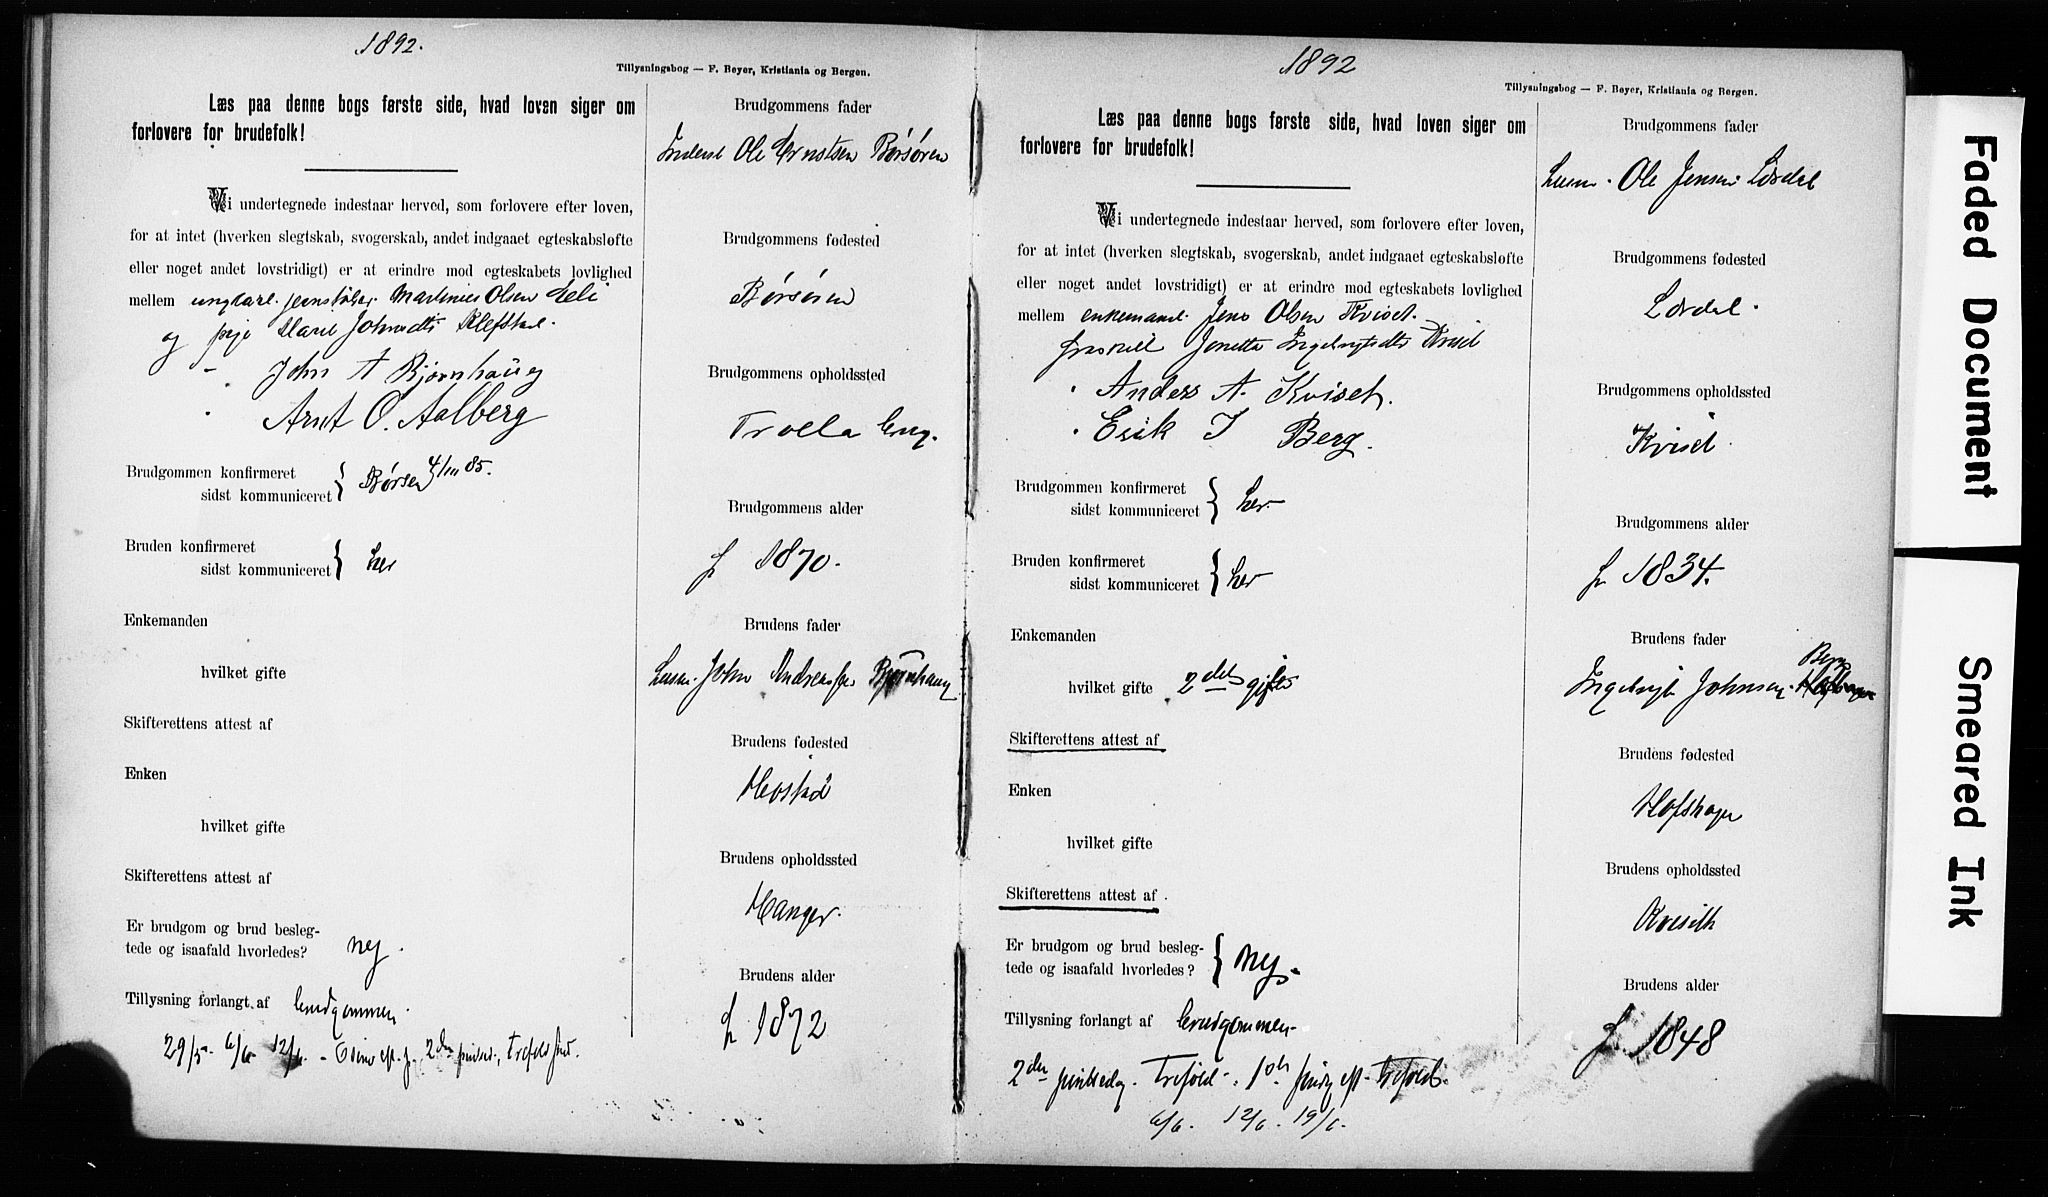 1892.
Tillysningsbog — F. Beyer, Kristiania og Bergen.
Læs paa denne bogs første side, hvad loven siger om
forlovere for brudefolk!
Vi undertegnede indestaar herved, som forlovere efter loven,
for at intet (hverken slegtskab, svogerskab, andet indgaaet egteskabsløfte
eller noget andet lovstridigt) er at erindre mod egteskabets lovlighed
mellem ungkarl Martinius Olsen
og pige Marie
John A Bjørnhaug
Arnt O. Aalberg
Brudgommen konfirmeret
sidst kommuniceret } Børsen 4/10 85.
Bruden konfirmeret
sidst kommuniceret } her
Enkemanden
hvilket gifte
Skifterettens attest af
Enken
hvilket gifte
Skifterettens attest af
Er brudgom og brud besleg-
tede og isaafald hvorledes? nej.
Tillysning forlangt af brudgommen.
29/5 6/6 12/6
Brudgommens fader
Ole Ernstsen Børsøren
Brudgommens fødested
Børsøren
Brudgommens opholdssted
Brudgommens alder
f. 1870.
Brudens fader
John Bjørnhaug
Brudens fødested
Brudens opholdssted
Hanger.
Brudens alder
f. 1872
1892
Tillysningsbog — F. Beyer, Kristiania og Bergen.
Læs paa denne bogs første side, hvad loven siger om
forlovere for brudefolk!
Vi undertegnede indestaar herved, som forlovere efter loven,
for at intet (hverken slegtskab, svogerskab, andet indgaaet egteskabsløfte
eller noget andet lovstridigt) er at erindre mod egteskabets lovlighed
mellem enkemand Jens Olsen Kviset
Anders A. Kviset.
Erik J Berg.
Brudgommen konfirmeret
sidst kommuniceret } her
Bruden konfirmeret
sidst kommuniceret } her
Enkemanden
hvilket gifte 2det gifte
Skifterettens attest af
Enken
hvilket gifte
Skifterettens attest af.
Er brudgom og brud besleg-
tede og isaafald hvorledes? } nej.
Tillysning forlangt af brudgommen
2den pintsedag
6/6. 12/6. 19/6.
Brudgommens fader
Ole Jensen Lørdal
Brudgommens fødested
Lørdal.
Brudgommens opholdssted
Kviset
Brudgommens alder
f. 1834.
Brudens fader
Berg
Johnsen
Brudens fødested
Hofshagen
Brudens opholdssted
Brudens alder
f. 1848
Faded Document
Smeared Ink